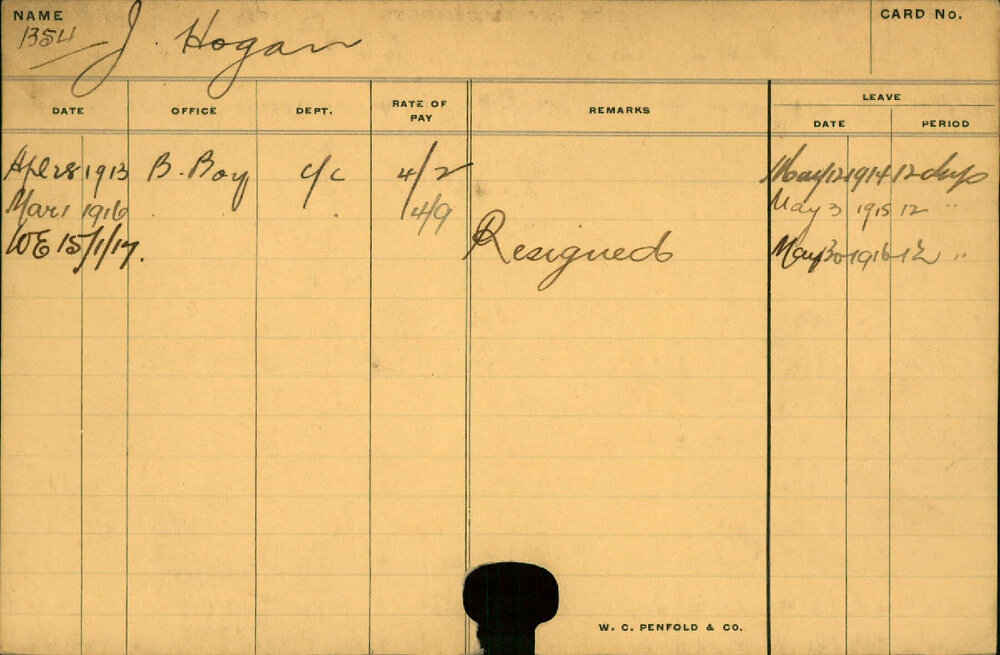 NAME CARD No.
1354 J. Hogan
LEAVE
DATE OFFICE DEPT. RATE OF PAY REMARKS DATE PERIOD
Apl 28 1913 B. Boy c/c 4/2 May 12 1914 12 days
Mar 1 1916 4/9 May 3 1915 12 "
WE 15/1/17. Resigned May 30 1916 12 "
W. C. PENFOLD & CO.